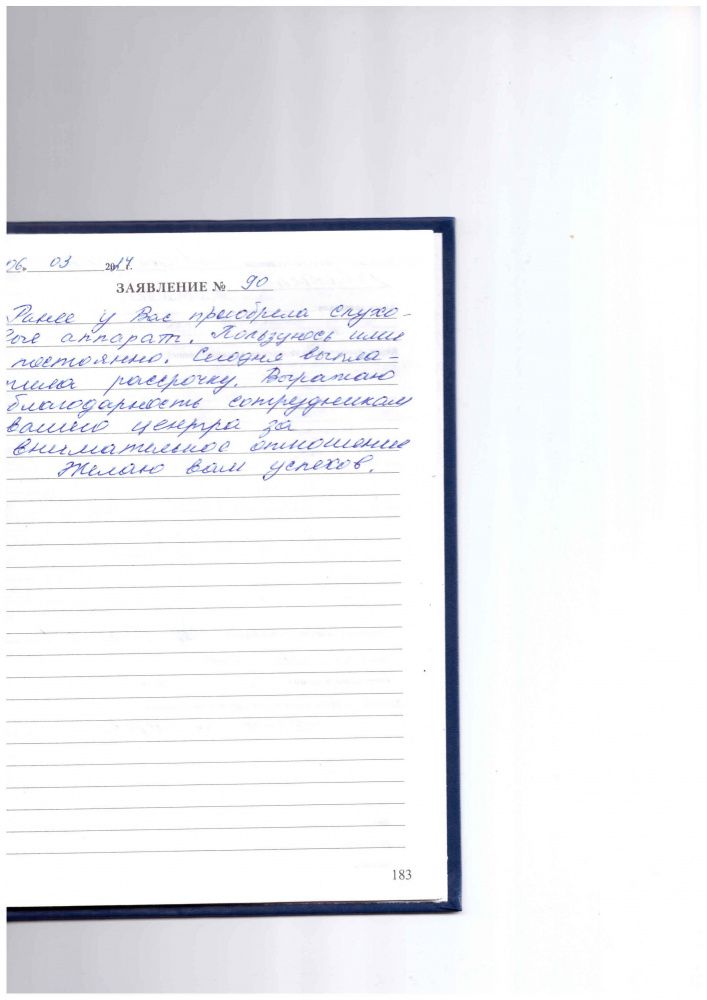 26. 03 2014 г.
ЗАЯВЛЕНИЕ № 90
Ранее у Вас приобрела слухо-
вые аппарат. Пользуюсь ими
постоянно. Сегодня выпла-
тила рассрочку. Выражаю
благодарность сотрудникам
вашего центра за
внимательное отношение
Желаю вам успехов.
183